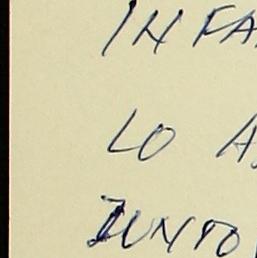 IN FA
LO A
IUNTO